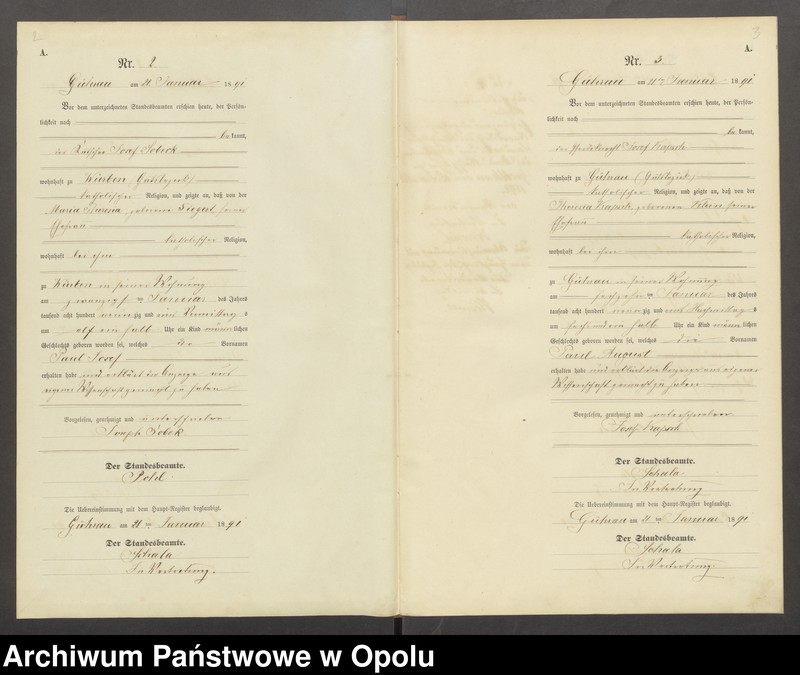 A.
Nr. 2
am 21 Januar 1891
Vor dem unterzeichneten Standesbeamten erschien heute, der Persön-
lichkeit nach
be kannt,
der Kutscher Josef Sobeck
wohnhaft zu (Gutsbezirk)
katholischer Religion, und zeigte an, daß von der
Maria geborene seiner
Ehefrau
katholischer Religion,
wohnhaft bei ihm
zu in seiner Wohnung
am zwanzigsten Januar des Jahres
tausend acht hundert neunzig und eins Vormittags
um elf ein halb Uhr ein Kind männlichen
Geschlechts geboren worden sei, welches die Vornamen
Paul Josef
erhalten habe und erklärt die Anzeige aus
eigener Wissenschaft gemacht zu haben
Vorgelesen, genehmigt und unterschrieben
Joseph Sobek
Der Standesbeamte.
Die Uebereinstimmung mit dem Haupt-Register beglaubigt.
am 21 ten Januar 1891
Der Standesbeamte.
In Vertretung.
3
A.
Nr. 3.
am Januar 1891
Vor dem unterzeichneten Standesbeamten erschien heute, der Persön-
lichkeit nach
be kannt,
der Pferdeknecht Josef
wohnhaft zu (Gutsbezirk)
katholischer Religion, und zeigte an, daß von der
geborenen seiner
Ehefrau
katholischer Religion,
wohnhaft bei ihm
zu in seiner Wohnung
am sechzehnten Januar des Jahres
tausend acht hundert neunzig und eins Nachmittags
um sechs ein halb Uhr ein Kind männlichen
Geschlechts geboren worden sei, welches die Vornamen
Paul August
erhalten habe und erklärt die Anzeige aus eigener
Wissenschaft gemacht zu haben
Vorgelesen, genehmigt und unterschrieben
Josef
Der Standesbeamte.
In Vertretung
Die Uebereinstimmung mit dem Haupt-Register beglaubigt.
am 21 ten Januar 1891
Der Standesbeamte.
In Vertretung.
Archiwum Państwowe w Opolu